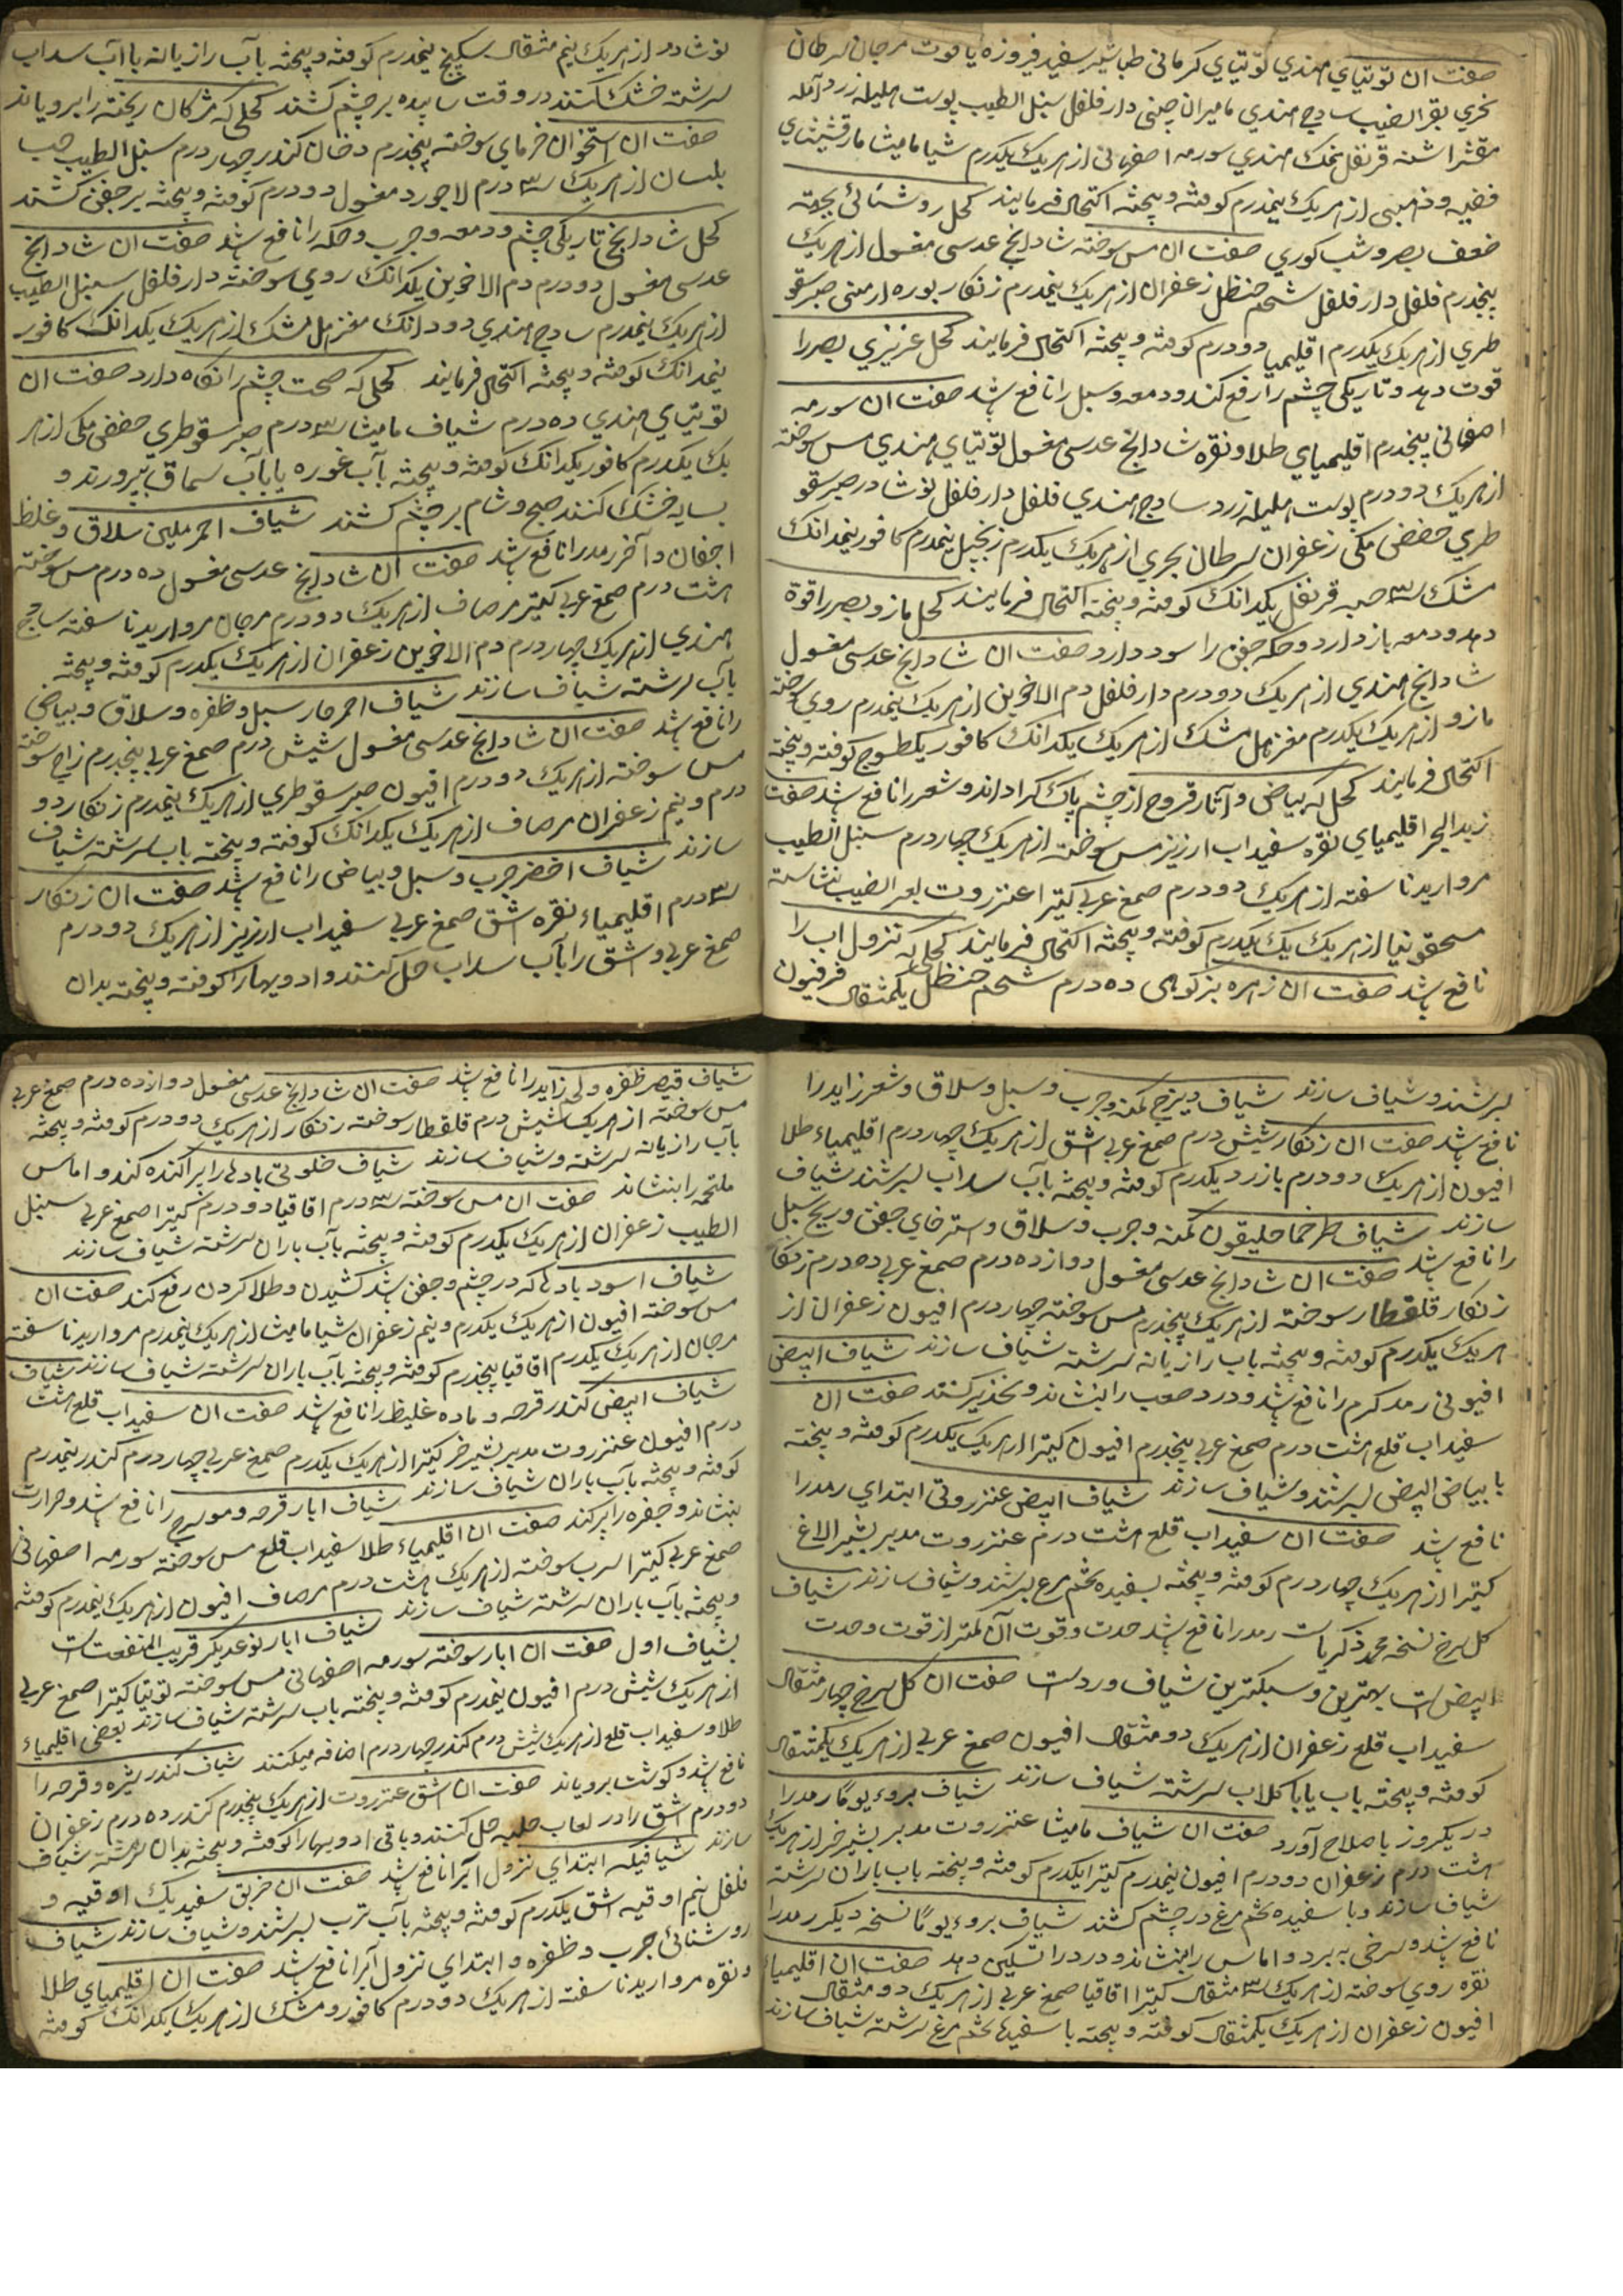 صفت آن توتیای هندی توتیای کرمانی طباشیر سفید فیروزه یاقوت مرجان سرطان
بحری بقر الضب سادج هندی مامیران چینی دار فلفل سنبل الطیب پوست هلیله زرد آمله
مقشر اشنه قرنفل نمک هندی سورمه اصفهانی از هریک یکدرم شیاف مامیثا مارقشیشای
فضیه و ذهبی از هریک نیمدرم کوفته و بیخته اکتحال فرمایند کحل روشنائی بجهته
ضعف بصر و شب کوری صفت آن مس سوخته شادانج عدسی مغسول از هریک
پنجدرم فلفل دار فلفل شحم حنظل زعفران از هریک نیمدرم زنکار بوره ارمنی صبر سقو
طری از هریک یکدرم اقلیمیا دودرم کوفته و بیخته اکتحال فرمایند کحل عزیزی بصر را
قوت دهد و تاریکی چشم را رفع کند و دمعه و سبل را نافع باشد صفت آن سورمه
اصفهانی پنجدرم اقلیمیای طلا و نقره شادانج عدسی مغسول توتیای هندی مس سوخته
از هریک دودرم پوست هلیله زرد سادج هندی فلفل دار فلفل نوشادر صبر سقو
طری حضض مکی زعفران سرطان بحری از هریک یکدرم زنجبیل نیمدرم کافور نیمدانک
مشک سه حبه قرنفل یکدانک کوفته و بیخته اکتحال فرمایند کحل مازو بصر را قوة
دهد و دمعه باز دارد و حکه جفن را سود دارد صفت آن شادانج عدسی مغسول
شادانج هندی از هریک دودرم دار فلفل دم الاخوین از هریک نیمدرم روی سوخته
مازو از هریک یکدرم مغز هل مشک از هریک یکدانک کافور یکطسوج کوفته و بیخته
اکتحال فرمایند کحلی که بیاض و آثار قروح از چشم پاک کرداند و شعر را نافع باشد صفت
زبد البحر اقلیمیای نقره سفیداب ارزیز مس سوخته از هریک چهاردرم سنبل الطیب
مروارید ناسفته از هریک دودرم صمغ عربی کتیرا عنزروت بعر الضب نشاسته
مسحقونیا از هریک یکدرم کوفته و بیخته اکتحال فرمایند کحلی که نزول آب را
نافع باشد صفت آن زهره بز کوهی ده درم شحم حنظل یکمثقال فرفیون
نوشادر از هریک نیم مثقال سکبینج نیمدرم کوفته و بیخته بآب رازیانه یا آب سداب
سرشته خشک کنند در وقت سپیده بر چشم کشند کحلی که مژکان ریخته را برویاند
صفت آن استخوان خرمای سوخته پنجدرم دخان کندر چهار درم سنبل الطیب حب
بلسان از هریک سه درم لاجورد مغسول دودرم کوفته و بیخته بر جفن کشند
کحل شادانج تاریکی چشم و دمعه و جرب و حکه را نافع باشد صفت آن شادانج
عدسی مغسول دودرم دم الاخوین یکدانک روی سوخته دار فلفل سنبل الطیب
از هریک نیمدرم سادج هندی دودانک مغز هل مشک از هریک یکدانک کافور
نیمدانک کوفته و بیخته اکتحال فرمایند کحلی که صحت چشم را نکاه دارد صفت آن
توتیای هندی ده درم شیاف مامیثا سه درم صبر سقوطری حضض مکی از هر
یک یکدرم کافور یکدانک کوفته و بیخته بآب غوره یا بآب سماق بپرورند و
بسایه خشک کنند صبح و شام بر چشم کشند شیاف احمر ملین سلاق و غلظ
اجفان و آخر رمد را نافع باشد صفت آن شادانج عدسی مغسول ده درم مس سوخته
هشت درم صمغ عربی کتیرا مرصاف از هریک دودرم مرجان مروارید ناسفته سادج
هندی از هریک چهاردرم دم الاخوین زعفران از هریک یکدرم کوفته و بیخته
بآب سرشته شیاف سازند شیاف احمر حار سبل و ظفره و سلاق و بیاض
را نافع باشد صفت آن شادانج عدسی مغسول شیش درم صمغ عربی پنجدرم زاج سوخته
مس سوخته از هریک دودرم افیون صبر سقوطری از هریک نیمدرم زنکار دو
درم و نیم زعفران مرصاف از هریک یکدانک کوفته و بیخته باب سرشته شیاف
سازند شیاف اخضر جرب و سبل و بیاض را نافع باشد صفت آن زنکار
سه درم اقلیمیاء نقره اشق صمغ عربی سفیداب ارزیز از هریک دودرم
صمغ عربی و اشق را بآب سداب حل کنند و ادویهارا کوفته و بیخته بدان
بسرشند و شیاف سازند شیاف دیزج کمنه و جرب و سبل و سلاق و شعر زاید را
نافع باشد صفت آن زنکار شیش درم صمغ عربی اشق از هریک چهاردرم اقلیمیاء طلا
افیون از هریک دودرم بازرد یکدرم کوفته و بیخته بآب سداب بسرشند شیاف
سازند شیاف طرخماحلیقون کمنه و جرب و سلاق و استرخای جفن و ریح سبل
را نافع باشد صفت آن شادانج عدسی مغسول دوازده درم صمغ عربی ده درم زنکار
زنکار قلقطار سوخته از هریک پنجدرم مس سوخته چهاردرم افیون زعفران از
هریک یکدرم کوفته و بیخته باب رازیانه سرشته شیاف سازند شیاف ابیض
افیونی رمد کرم را نافع باشد و درد صعب را بنشاند و تخدیر کند صفت آن
سفیداب قلع هشت درم صمغ عربی پنجدرم افیون کتیرا از هریک یکدرم کوفته و بیخته
با بیاض البیض بسرشند و شیاف سازند شیاف ابیض عنزروتی ابتدای رمد را
نافع باشد صفت آن سفیداب قلع هشت درم عنزروت مدبر بشیر الاغ
کتیرا از هریک چهاردرم کوفته و بیخته بسفیده تخم مرغ بسرشند و شیاف سازند شیاف
کل سرخ نسخه محمد ذکریاست رمد را نافع باشد حدت و قوت آن کمتر از قوت و حدت
ابیض است بهترین و سبکترین شیاف ورداست صفت آن کل سرخ چهار مثقال
سفیداب قلع زعفران از هریک دو مثقال افیون صمغ عربی از هریک یکمثقال
کوفته و بیخته باب یا با کلاب سرشته شیاف سازند شیاف بروء یوما رمد را
در یکروز باصلاح آورد صفت آن شیاف مامیثا عنزروت مدبر بشیر خر از هریک
هشت درم زعفران دودرم افیون نیمدرم کتیرا یکدرم کوفته و بیخته باب باران سرشته
شیاف سازند و با سفیده تخم مرغ در چشم کشند شیاف بروء یوما نسخه دیکر رمد را
نافع باشد و سرخی به برد و اماس را بنشاند و درد را تسکین دهد صفت آن اقلیمیاء
نقره روی سوخته از هریک سه مثقال کتیرا اقاقیا صمغ عربی از هریک دو مثقال
افیون زعفران از هریک یکمثقال کوفته و بیخته با سفیده تخم مرغ سرشته شیاف سازند
شیاف قیصر ظفره و لحم زاید را نافع باشد صفت آن شادانج عدسی مغسول دوازده درم صمغ عربی
مس سوخته از هریک شیش درم قلقطار سوخته زنکار از هریک دودرم کوفته و بیخته
بآب رازیانه سرشته و شیاف سازند شیاف خلوتی بادها را پراکنده کند و اماس
ملتحمه را بنشاند صفت آن مس سوخته سه درم اقاقیا دودرم کتیرا صمغ عربی سنبل
الطیب زعفران از هریک یکدرم کوفته و بیخته بآب باران سرشته شیاف سازند
شیاف اسود بادها که در چشم و جفن باشد کشیدن و طلا کردن رفع کند صفت آن
مس سوخته افیون از هریک یکدرم و نیم زعفران شیاف مامیثا از هریک نیمدرم مروارید ناسفته
مرجان از هریک یکدرم اقاقیا پنجدرم کوفته و بیخته بآب باران سرشته شیاف سازند شیاف
شیاف ابیض کندر قرحه و ماده غلیظ را نافع باشد صفت آن سفیداب قلع هشت
درم افیون عنزروت مدبر بشیر خر کتیرا از هریک یکدرم صمغ عربی چهاردرم کندر نیمدرم
کوفته و بیخته بآب باران شیاف سازند شیاف ابار قرحه و مورسرج را نافع باشد و حرارت
بنشاند و حفره را پر کند صفت آن اقلیمیاء طلا سفیداب قلع مس سوخته سورمه اصفهانی
صمغ عربی کتیرا سرب سوخته از هریک هشت درم مرصاف افیون از هریک نیمدرم کوفته
و بیخته بآب باران سرشته شیاف سازند شیاف ابار نوعدیکر قریب المنفعت است
بشیاف اول صفت آن ابار سوخته سورمه اصفهانی مس سوخته توتیا کتیرا صمغ عربی
از هریک شیش درم افیون نیمدرم کوفته و بیخته باب سرشته شیاف سازند بعضی اقلیمیاء
طلا و سفیداب قلع از هریک شیش درم کندر چهاردرم اضافه میکنند شیاف کندر بثره و قرحه را
نافع باشد و کوشت برویاند صفت آن اشق عنزروت از هریک پنجدرم کندر ده درم زعفران
دودرم اشق را در لعاب حلبه حل کنند و باقی ادویهارا کوفته و بیخته بدان سرشته شیاف
سازند شیافیله ابتدای نزول آبرا نافع باشد صفت آن خربق سفید یک اوقیه و
فلفل نیم اوقیه اشق یکدرم کوفته و بیخته بآب ترب بسرشند و شیاف سازند شیاف
روشنائی جرب و ظفره و ابتدای نزول آبرا نافع باشد صفت آن اقلیمیای طلا
و نقره مروارید ناسفته از هریک دودرم کافور و مشک از هریک یکدانک کوفته